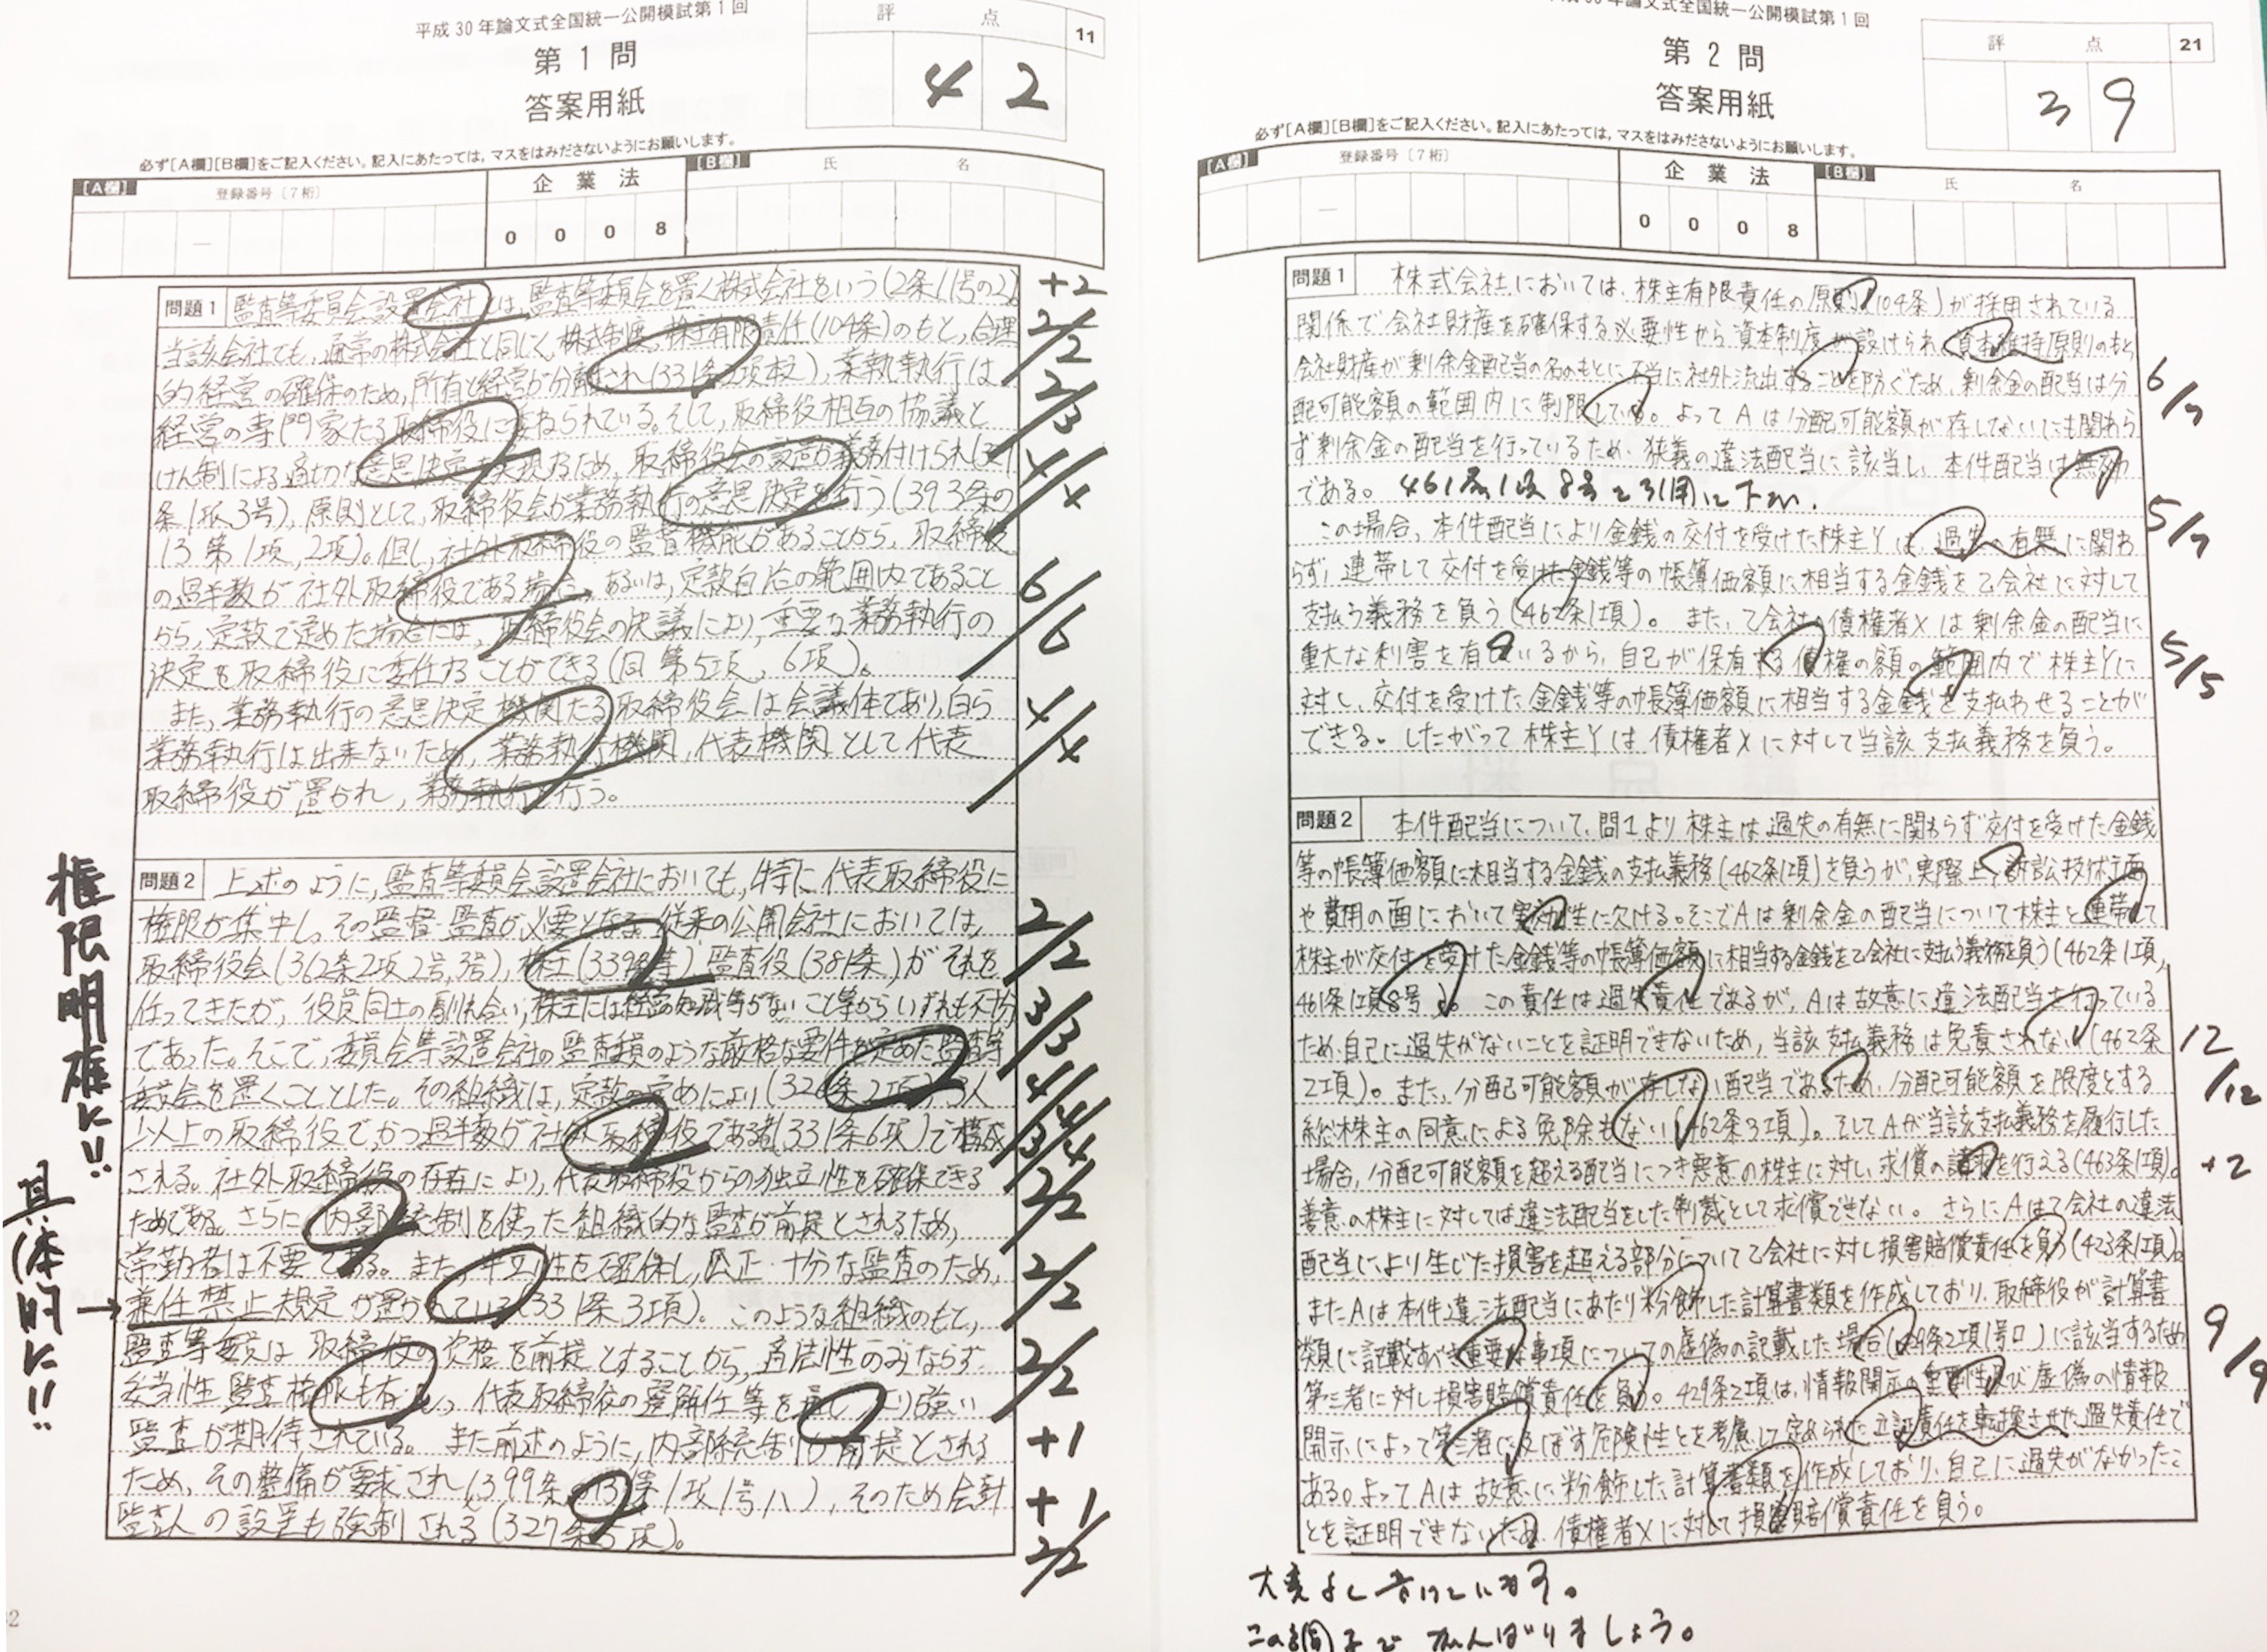 平成30年論文式全国統一公開模試第1回
第1問
答案用紙
評 点
11
42
必ず[A欄][B欄]をご記入ください。記入にあたっては,マスをはみださないようにお願いします。
[A欄]
登録番号〔7桁〕
企業法
[B欄]
氏 名
0 0 0 8
問題1
監査等委員会設置会社とは,監査等委員会を置く株式会社をいう(2条11号の2)。
当該会社でも,通常の株式会社と同じく,株式制度,株主有限責任(104条)のもと,合理
的経営の確保のため,所有と経営が分離され(331条2項本文),業執執行は
経営の専門家たる取締役に委ねられている。そして,取締役相互の協議と
けん制による適切な意思決定を実現するため,取締役会の設置が義務付けられ(327
条1項3号),原則として,取締役会が業務執行の意思決定を行う(393条の
13第1項,2項)。但し,社外取締役の監督機能があることから,取締役
の過半数が社外取締役である場合,あるいは,定款自治の範囲内であること
から,定款で定めた場合には,取締役会の決議により,重要な業務執行の
決定を取締役に委任することができる(同第5項,6項)。
また,業務執行の意思決定機関たる取締役会は会議体であり,自ら
業務執行は出来ないため,業務執行機関,代表機関として代表
取締役が置かれ,業務執行を行う。
+2
2/2
2/3
4/4
6/6
4/4
問題2
上述のように,監査等委員会設置会社においても,特に代表取締役に
権限が集中し,その監督・監査が必要となる。従来の公開会社においては,
取締役会(362条2項2号,3号),株主(339条等)監査役(381条)がそれを
任ってきたが,役員同士の馴れ合い,株主には経営知識等がないこと等からいずれも不十分
であった。そこで,委員会等設置会社の監査委員のような厳格な要件を定めた監査等
委員会を置くこととした。その組織は,定款の定めにより(326条2項),3人
以上の取締役で,かつ過半数が社外取締役である者(331条6項)で構成
される。社外取締役の存在により,代表取締役からの独立性を確保できる
ためである。さらに,内部統制を使った組織的な監査が前提とされるため,
常勤者は不要である。また,中立性を確保し,公正・十分な監査のため,
兼任禁止規定が置かれている(331条3項)。このような組織のもと,
監査等委員は取締役の資格を前提とすることから,適法性のみならず
妥当性監査権限も有し,代表取締役の選解任等を通じより強い
監査が期待されている。また前述のように,内部統制が前提とされる
ため,その整備が要求され(399条の13第1項1号ハ),そのため会計
監査人の設置も強制される(327条5項)。
権限明確に!!
具体的に!!
2/2
3/3
4/4
3/4
2/2
2/2
2/2
+1
+1
2/2
平成30年論文式全国統一公開模試第1回
第2問
答案用紙
評 点
21
39
必ず[A欄][B欄]をご記入ください。記入にあたっては,マスをはみださないようにお願いします。
[A欄]
登録番号〔7桁〕
企業法
[B欄]
氏 名
0 0 0 8
問題1
株式会社においては,株主有限責任の原則(104条)が採用されている
関係で会社財産を確保する必要性から資本制度が設けられ,資本維持原則のもと
会社財産が剰余金配当の名のもとに不当に社外流出することを防ぐため,剰余金の配当は分
配可能額の範囲内に制限している。よってAは分配可能額が存しないにも関わら
ず剰余金の配当を行っているため,狭義の違法配当に該当し,本件配当は無効
である。 461条1項8号を引用して下さい。
この場合,本件配当により金銭の交付を受けた株主Yは,過失の有無に関わ
らず,連帯して交付を受けた金銭等の帳簿価額に相当する金銭を乙会社に対して
支払う義務を負う(462条1項)。また,乙会社の債権者Xは剰余金の配当に
重大な利害を有しているから,自己が保有する債権の額の範囲内で株主Yに
対し,交付を受けた金銭等の帳簿価額に相当する金銭を支払わせることが
できる。したがって株主Yは債権者Xに対して当該支払義務を負う。
6/7
5/7
5/5
問題2
本件配当について,問1より株主は過失の有無に関わらず交付を受けた金銭
等の帳簿価額に相当する金銭の支払義務(462条1項)を負うが,実際上,訴訟技術上面
や費用の面において実効性に欠ける。そこでAは剰余金の配当について株主と連帯して
株主が交付を受けた金銭等の帳簿価額に相当する金銭を乙会社に支払う義務を負う(462条1項,
461条1項8号)。この責任は過失責任であるが,Aは故意に違法配当を行っている
ため,自己に過失がないことを証明できないため,当該支払義務は免責されない(462条
2項)。また,分配可能額が存しない配当であるため,分配可能額を限度とする
総株主の同意による免除もない(462条3項)。そしてAが当該支払義務を履行した
場合,分配可能額を超える配当につき悪意の株主に対し求償の請求を行える(463条1項)。
善意の株主に対しては違法配当をした制裁として求償できない。さらにAは乙会社の違法
配当により生じた損害を超える部分について乙会社に対し損害賠償責任を負う(423条1項)。
またAは本件違法配当にあたり粉飾した計算書類を作成しており,取締役が計算書
類に記載すべき重要な事項についての虚偽の記載した場合(429条2項1号ロ)に該当するため
第三者に対し損害賠償責任を負う。429条2項は,情報開示の重要性及び虚偽の情報
開示によって第三者に及ぼす危険性とを考慮して定められた立証責任を転換させた過失責任で
ある。よってAは故意に粉飾した計算書類を作成しており,自己に過失がなかったこ
とを証明できないため,債権者Xに対して損害賠償責任を負う。
12/12
+2
9/9
大変よく書けています。
この調子でがんばりましょう。